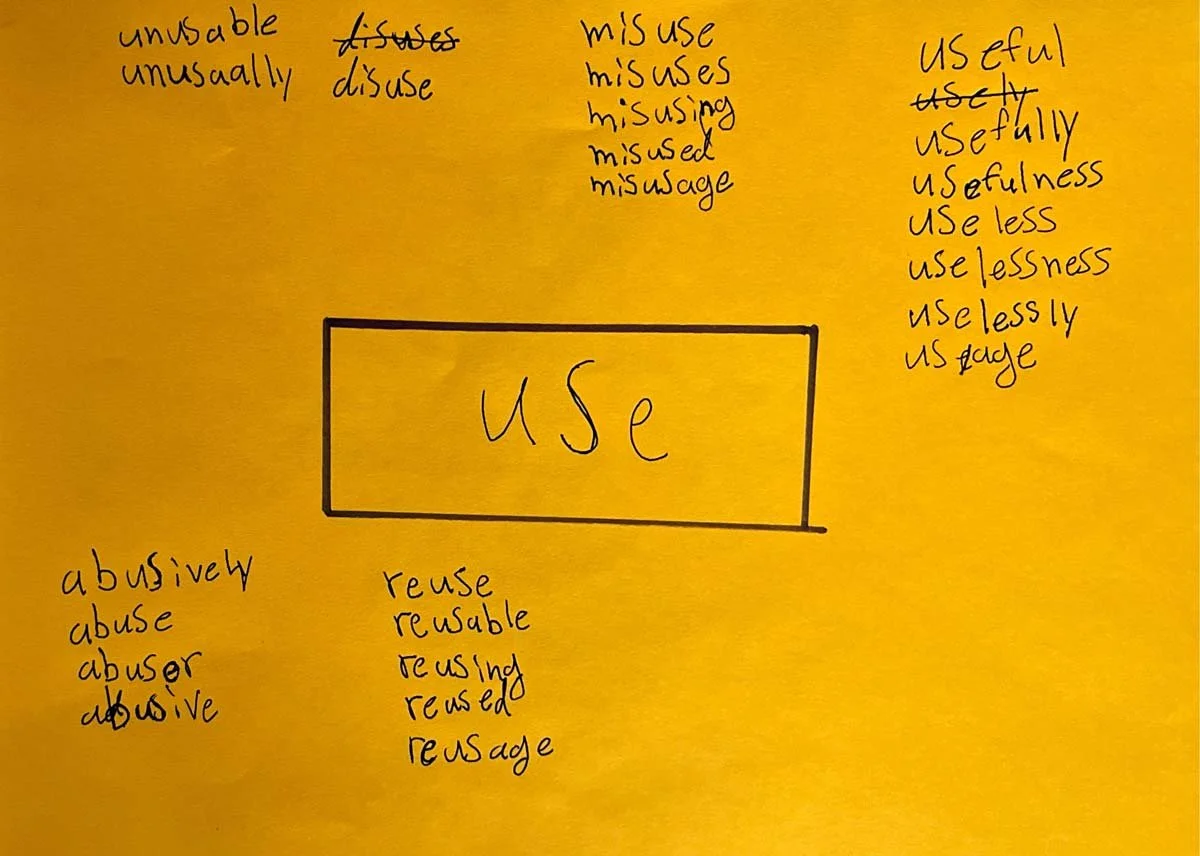 unusable
unusually
disuses
disuse
misuse
misuses
misusing
misused
misusage
useful
usely
usefully
usefulness
useless
uselessness
uselessly
usage
use
abusively
abuse
abuser
abusive
reuse
reusable
reusing
reused
reusage